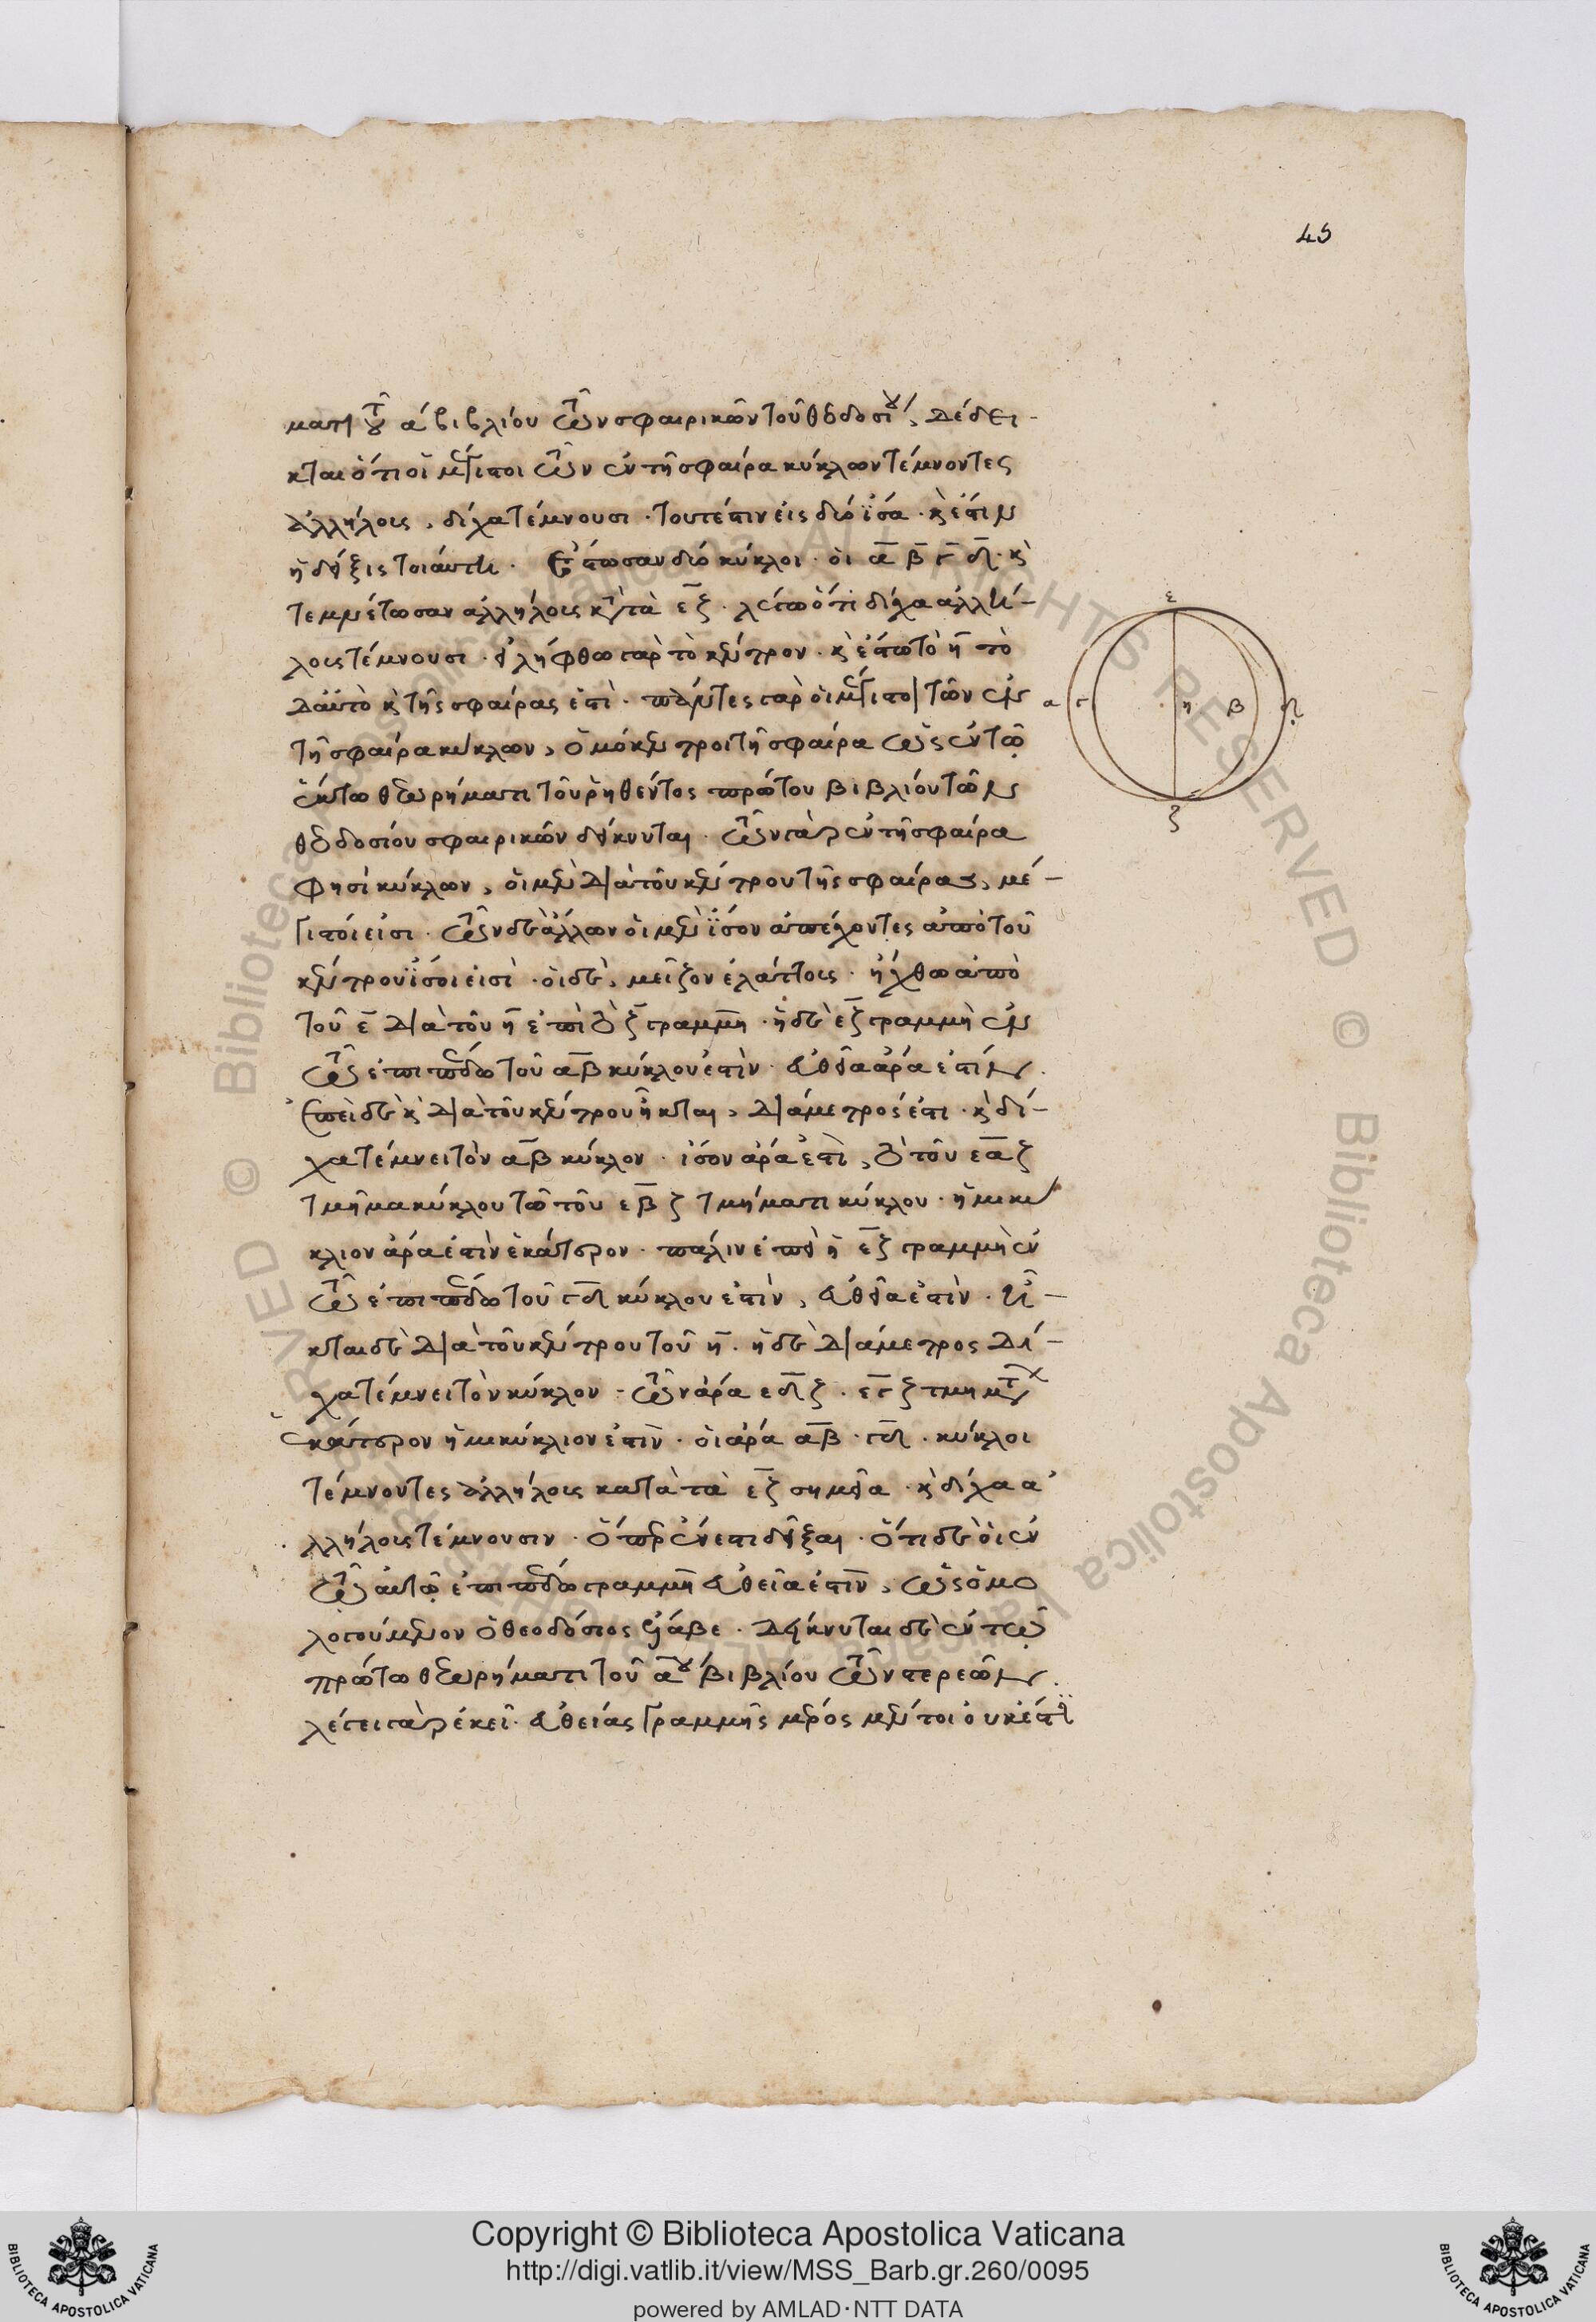 45
ματι τοῦ α΄ βιβλίου τῶν σφαιρικῶν τοῦ θεοδοσίου, δέδει-
κται ὅτι οἱ μέγιστοι τῶν ἐν τῆ σφαίρα κύκλων τέμνοντες
ἀλλήλους, δίχα τέμνουσι · τουτέστιν εἰς δύο ἴσα · κ ἔστιν
ἡ δεῖξις τοιάυτη · ἔστωσαν δύο κύκλοι · οἱ α β γ δ · κ
τεμνέτωσαν αλλήλους κατὰ τὰ ε ζ · λέγω ὅτι δίχα αλλή-
λους τέμνουσι · εἰλήφθω γαρ τὸ κέντρον · κ ἔστω τὸ η τὸ
δαὐτὸ κ τῆς σφαίρας ἐστὶ · πάντες γαρ οἱ μέγιστοι τῶν ἐν
τῆ σφαίρα κύκλων, ὁμόκεντροι τῆ σφαίρα ὡς ἐν τῶ
ἕκτω θεωρήματι τοῦ ῥηθέντος πρώτου βιβλίου τῶν
θεοδοσίου σφαιρικῶν δείκνυται · τῶν γὰρ ἐν τῆ σφαίρα
φησὶ κύκλων, οἱ μὲν διὰ τοῦ κέντρου τῆς σφαίρας, μέ-
γιστοί εἰσι · τῶν δὲ ἄλλων οἱ μὲν ἴσον ἀπέχοντες ἀπὸ τοῦ
κέντρου ἴσοι εἰσὶ · οἱ δὲ, μεῖζον ἐλάττους · ἤχθω ἀπὸ
τοῦ ε διὰ τοῦ η ἐπὶ τὸ ζ γραμμη · ἡ δὲ εζ γραμμὴ ἐν
τῶ ἐπιπέδω τοῦ αβ κύκλου ἐστὶν · εὐθεῖα ἄρα ἐστίν ·
ἐπεὶ δὲ κ διὰ τοῦ κέντρου ἦκται, διάμετρός ἐστι · κ δί-
χα τέμνει τὸν αβ κύκλον · ἴσον ἄρα ἐστὶ, τὸ τοῦ εαζ
τμῆμα κύκλου τῶ τοῦ εβζ τμήματι κύκλου · ἡμικύ
κλιον ἄρα ἐστὶν ἑκάτερον · πάλιν ἐπεὶ ἡ εζ γραμμὴ ἐν
τῶ ἐπιπέδω τοῦ γδ κύκλου ἐστὶν, εὐθεῖα ἐστὶν · ἦ-
κται δὲ διὰ τοῦ κέντρου τοῦ η · ἡ δὲ διάμετρος δί-
χα τέμνει τὸν κύκλον · τῶν ἄρα εδζ · εγζ τμημάτων
ἑκάτερον ἡμικύκλιον ἐστὶν · οἱ ἄρα αβ · γδ · κύκλοι
τέμνοντες ἀλλήλους κατὰ τὰ εζ σημεῖα · κ δίχα α
λλήλους τέμνουσιν · ὅπερ ἔνεστι δεῖξαι · ὅτι δὲ ἡ ἐν
τῶ αὐτῶ ἐπιπέδω γραμμη εὐθεῖα ἐστὶν, ὡς ὁμο
λογούμενον ὁ θεοδόσιος ἔλαβε · δείκνυται δὲ ἐν τῶ
πρώτω θεωρήματι τοῦ α βιβλίου τῶν στερεῶν ·
λέγει γὰρ ἐκεῖ · εὐθείας γραμμῆς μέρος μέν τοι οὐκ ἔστι
ε
α γ η β δ
ζ
Copyright © Biblioteca Apostolica Vaticana
http://digi.vatlib.it/view/MSS_Barb.gr.260/0095
powered by AMLAD·NTT DATA
BIBLIOTECA APOSTOLICA VATICANA
BIBLIOTECA APOSTOLICA VATICANA